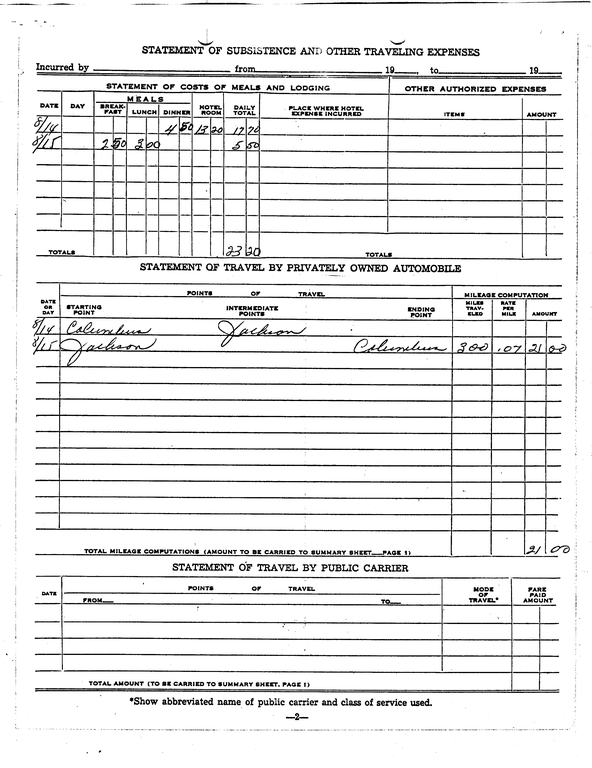 STATEMENT OF SUBSISTENCE AND OTHER TRAVELING EXPENSES
Incurred by from 19 , to 19
STATEMENT OF COSTS OF MEALS AND LODGING OTHER AUTHORIZED EXPENSES
DATE DAY MEALS BREAK-FAST LUNCH DINNER HOTEL ROOM DAILY TOTAL PLACE WHERE HOTEL EXPENSE INCURRED ITEMS AMOUNT
8/14 4 50 13 20 17 70
8/15 2 50 3 00 5 50
TOTALS 23 20 TOTALS
STATEMENT OF TRAVEL BY PRIVATELY OWNED AUTOMOBILE
DATE OR DAY POINTS OF TRAVEL MILEAGE COMPUTATION
STARTING POINT INTERMEDIATE POINTS ENDING POINT MILES TRAV-ELED RATE PER MILE AMOUNT
8/14 Columbus Jackson
8/15 Jackson Columbus 300 .07 21 00
TOTAL MILEAGE COMPUTATIONS (AMOUNT TO BE CARRIED TO SUMMARY SHEET—PAGE 1) 21 00
STATEMENT OF TRAVEL BY PUBLIC CARRIER
DATE POINTS OF TRAVEL MODE OF TRAVEL* FARE PAID AMOUNT
FROM— TO—
TOTAL AMOUNT (TO BE CARRIED TO SUMMARY SHEET, PAGE 1)
*Show abbreviated name of public carrier and class of service used.
—2—